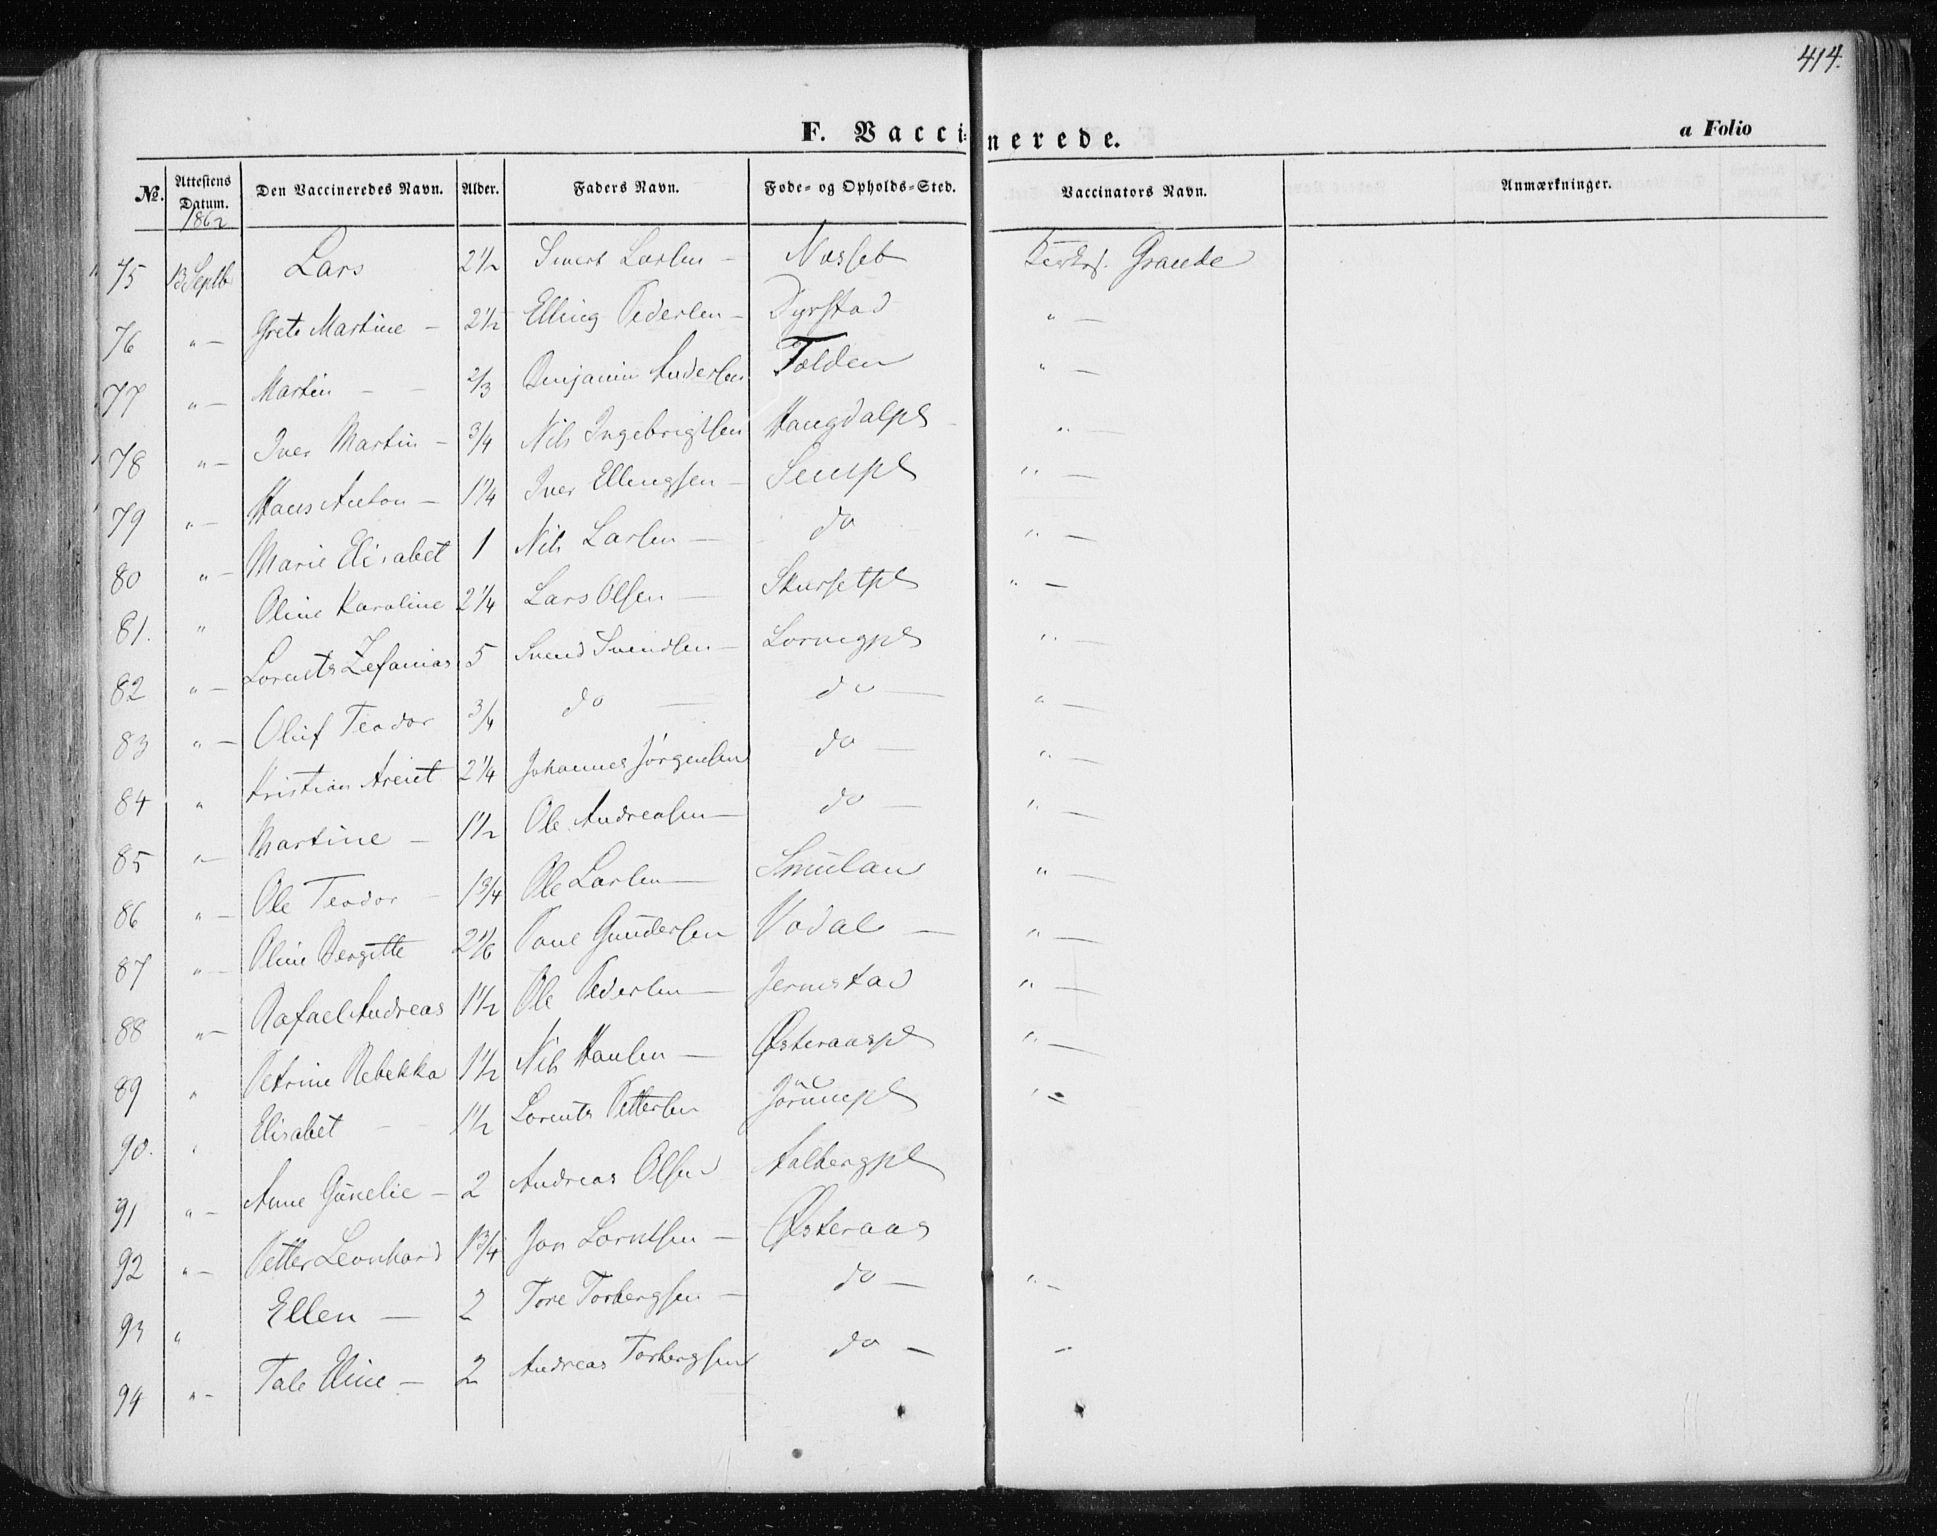 414.
F. Vaccinerede.
a Folio
No. Attestens Datum. Den Vaccineredes Navn. Alder. Faders Navn. Føde- og Opholds-Sted. Vaccinators Navn. Anmærkninger.
1862
75 13 Septb Lars 2 1/2 Sivert Larsen - Næsset Grande
76 " — Grete Martine — 2 1/2 Elling Pedersen - Dyrstad " —
77 " — Martin — - 2/3 Benjamin Andersen Tolden " —
78 " — Iver Martin — 3/4 Nils Ingebrigtsen Haugdalpl " —
79 " — Hans Anton — 1 1/4 Iver Ellingsen — Sempl " —
80 " — Marie Elisabet 1 Nils Larsen — do " —
81. " Oline Karoline 2 1/4 Lars Olsen — Skursetpl " —
82 " — Lorents Zefanias 5 Svend Svendsen — " —
83 " — Oluf Teodor 3/4 do — do — " —
84 " Kristian Areut 2 1/4 Johannes Jørgensen do — " —
85 " — Martine — 1 1/2 Ole Andreasen — do — " —
86 " — Ole Teodor — 1 3/4 Ole Larsen — Smulan " —
87 " — Oline Bergitte 2 1/6 Paul Gundersen Vodal — " —
88 " — Rafael Andreas 1 1/2 Ole Pedersen — Jermstad " —
89 " Petrine Rebekka 1 1/2 Nils Hansen — Østeraaspl " —
90. " Elisabet - - 1 1/2 Lorents Pettersen " -
91 " — Anne Gunelie — 2 Andreas Olsen Aalbergpl
92 " — Petter Leonhard 1 3/4 Jon Lorntsen — Østeraas
93 " Ellen — 2 Tore Torbergsen — do — " —
94 " — Tale Eline — 2 Andreas Torbergsen do — —